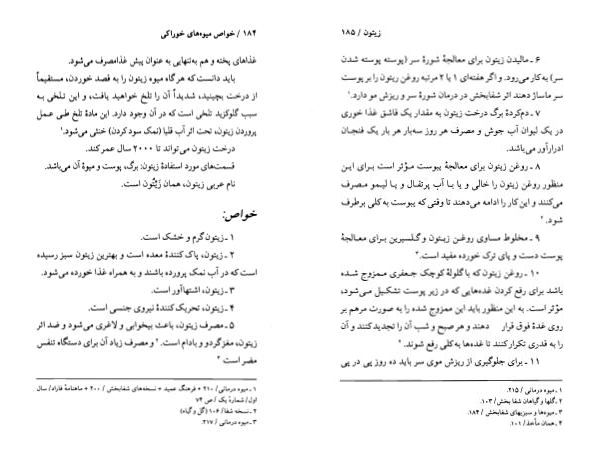 ۱۸۴ / خواص میوه‌های خوراکی
غذاهای پخته و هم به‌تنهایی به عنوان پیش غذامصرف می‌شود.
باید دانست که هرگاه میوه زیتون را به قصد خوردن، مستقیماً
از درخت بچینید، شدیداً آن را تلخ خواهید یافت، و این تلخی به
سبب گلوکزید تلخی است که در آن وجود دارد. این مادۀ تلخ طی عمل
پروردن زیتون، تحت اثر آب قلیا (نمک سود کردن) خنثی می‌شود.۱
درخت زیتون می‌تواند تا ۲۰۰۰ سال عمر کند.
قسمت‌های مورد استفادۀ زیتون: برگ، پوست و میوۀ آن می‌باشد.
نام عربی زیتون، همان زَیْتُون است.
خواص:
۱ ـ زیتون گرم و خشک است.
۲ ـ زیتون، پاک کنندۀ معده است و بهترین زیتون سبز رسیده
است که در آب نمک پرورده باشند و به همراه غذا خورده می‌شود.
۳ ـ زیتون، اشتهاآور است.
۴ ـ زیتون، تحریک‌کنندۀ نیروی جنسی است.
۵ ـ مصرف زیتون، باعث بیخوابی و لاغری می‌شود و ضد اثر
زیتون، مغزگردو و بادام است.۲ و مصرف زیاد آن برای دستگاه تنفس
مضر است.۳
۱ ـ میوه درمانی/ ۲۱۰ + فرهنگ عمید + نسخه‌های شفابخش / ۲۰۰ + ماهنامۀ فاراد/ سال
اول/ شمارۀ یک / ص ۷۴
۲ ـ نسخه شفا/ ۱۰۶ (گل و گیاه)
۳ ـ میوه درمانی / ۲۱۷
زیتون / ۱۸۵
۶ ـ مالیدن زیتون برای معالجۀ شورۀ سر (پوسته پوسته شدن
سر) به‌کار می‌رود. و اگر هفته‌ای ۱ یا ۲ مرتبه روغن زیتون را بر پوست
سر ماساژ دهند اثر شفابخش در درمان شوره سر و ریزش مو دارد.۱
۷ ـ دم‌کردۀ برگ درخت زیتون به مقدار یک قاشق غذا خوری
در یک لیوان آب جوش و مصرف هر روز سه‌بار هر بار یک فنجان
ادرارآور می‌باشد.
۸ ـ روغن زیتون برای معالجۀ یبوست مؤثر است برای این
منظور روغن زیتون را خالی و یا با آب پرتقال و یا لیمو مصرف
می‌کنند و این‌کار را ادامه می‌دهند تا وقتی که یبوست به‌کلی برطرف
شود.۲
۹ ـ مخلوط مساوی روغن زیتون و گلسیرین برای معالجۀ
پوست دست و پای ترک خورده مفید است.۳
۱۰ ـ روغن زیتون که با گلولۀ کوچک جعفری ممزوج شده
باشد برای رفع کردن غده‌هایی که در زیر پوست تشکیل می‌شود،
مؤثر است. به این منظور باید این ممزوج شده را به صورت مرهم بر
روی غدۀ فوق قرار دهند و هر صبح و شب آن را تجدید کنند و آن
را به قدری تکرار کنند تا غده‌ها به‌کلی رفع شوند.۴
۱۱ ـ برای جلوگیری از ریزش موی سر باید ده روز پی در پی
۱ ـ میوه درمانی/ ۲۱۵.
۲ ـ گلها و گیاهان شفا بخش/ ۱۰۳.
۳ ـ میوه‌ها و سبزیهای شفابخش / ۱۸۴.
۴ ـ همان مأخذ/ ۱۰۱.